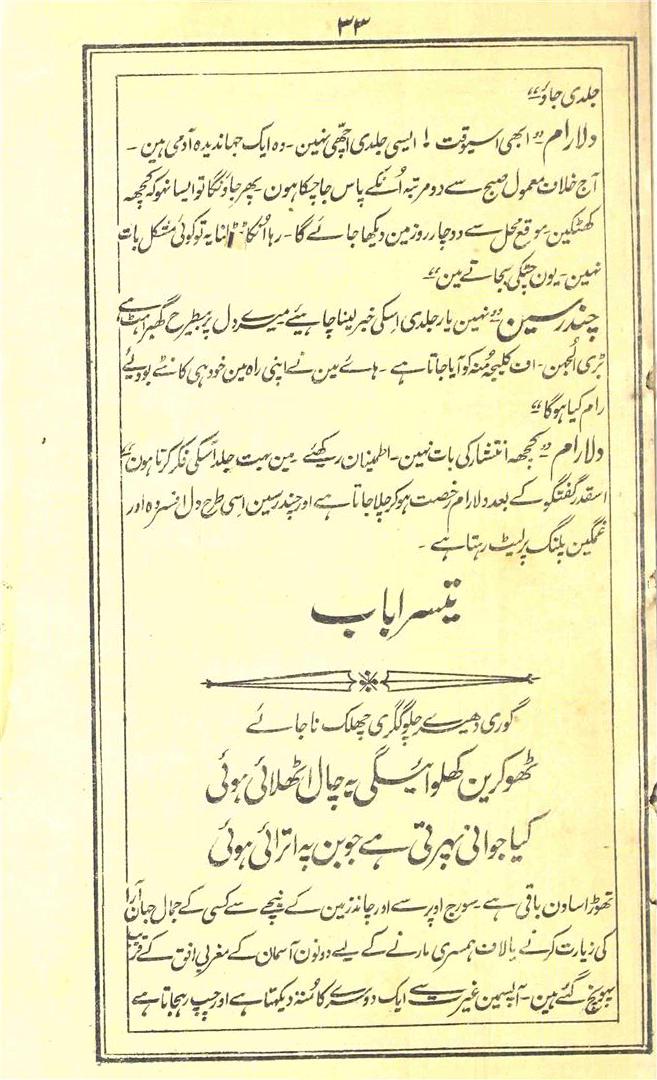 ۳۳
جلدی جاؤ"
دلارام "ابھی اسیوقت! ایسی جلدی اچھی نہین۔ وہ ایک جہاندیدہ آدمی ہین۔
آج خلاف معمول صبح سے دو مرتبہ اُنکے پاس جا چکا ہون پھر جاؤنگا تو ایسا نہو کہ کچھہ
کھٹکین۔ موقع محل سے دو چار روز مین دیکھا جائے گا۔ رہا اُنکا اٹرانا یہ تو کوئی مشکل بات
نہین۔ یون چٹکی بجاتے مین"
چندرسین "نہین یار جلدی اِسکی خبر لینا چاہیئے میرے دل پر بیطرح گھبراہٹ ہے
بڑی اُلجہن۔ اف کلیجہ مُنہ کو آیا جاتا ہے۔ ہائے مین نے اپنی راہ مین خود ہی کانٹے بودیئے
رام کیا ہوگا"
دلارام "کچھہ انتشار کی بات نہین۔ اطمینان رکھئے مین بہت جلد اُسکی فکر کرتا ہون"
اسقدر گفتگو کے بعد دلارام رخصت ہوکر چلا جاتا ہے اور چندرسین اِسی طرح دل افسردہ اور
غمگین پلنگ پر لیٹ رہتا ہے۔
تیسرا باب
گوری دھیرے چلو گگری چھلک نا جائے
ٹھوکرین کھلوائیگی یہ چال اٹھلائی ہوئی
کیا جوانی پہرتی ہے جوبن پہ اترائی ہوئی
تھوڑا سا دن باقی ہے۔ سورج اوپر سے اور چاند زمین کے نیچے سے کسی کے جمال جہان آرا
کی زیارت کرنے یا لاف ہمسری مارنے کے لیے دونون آسمان کے مغربی افق کے قریب
پہونچ گئے ہین۔ آپسمین غیرت سے ایک دوسرے کا مُنہ دیکہتا ہے اور چپ رہجاتا ہے